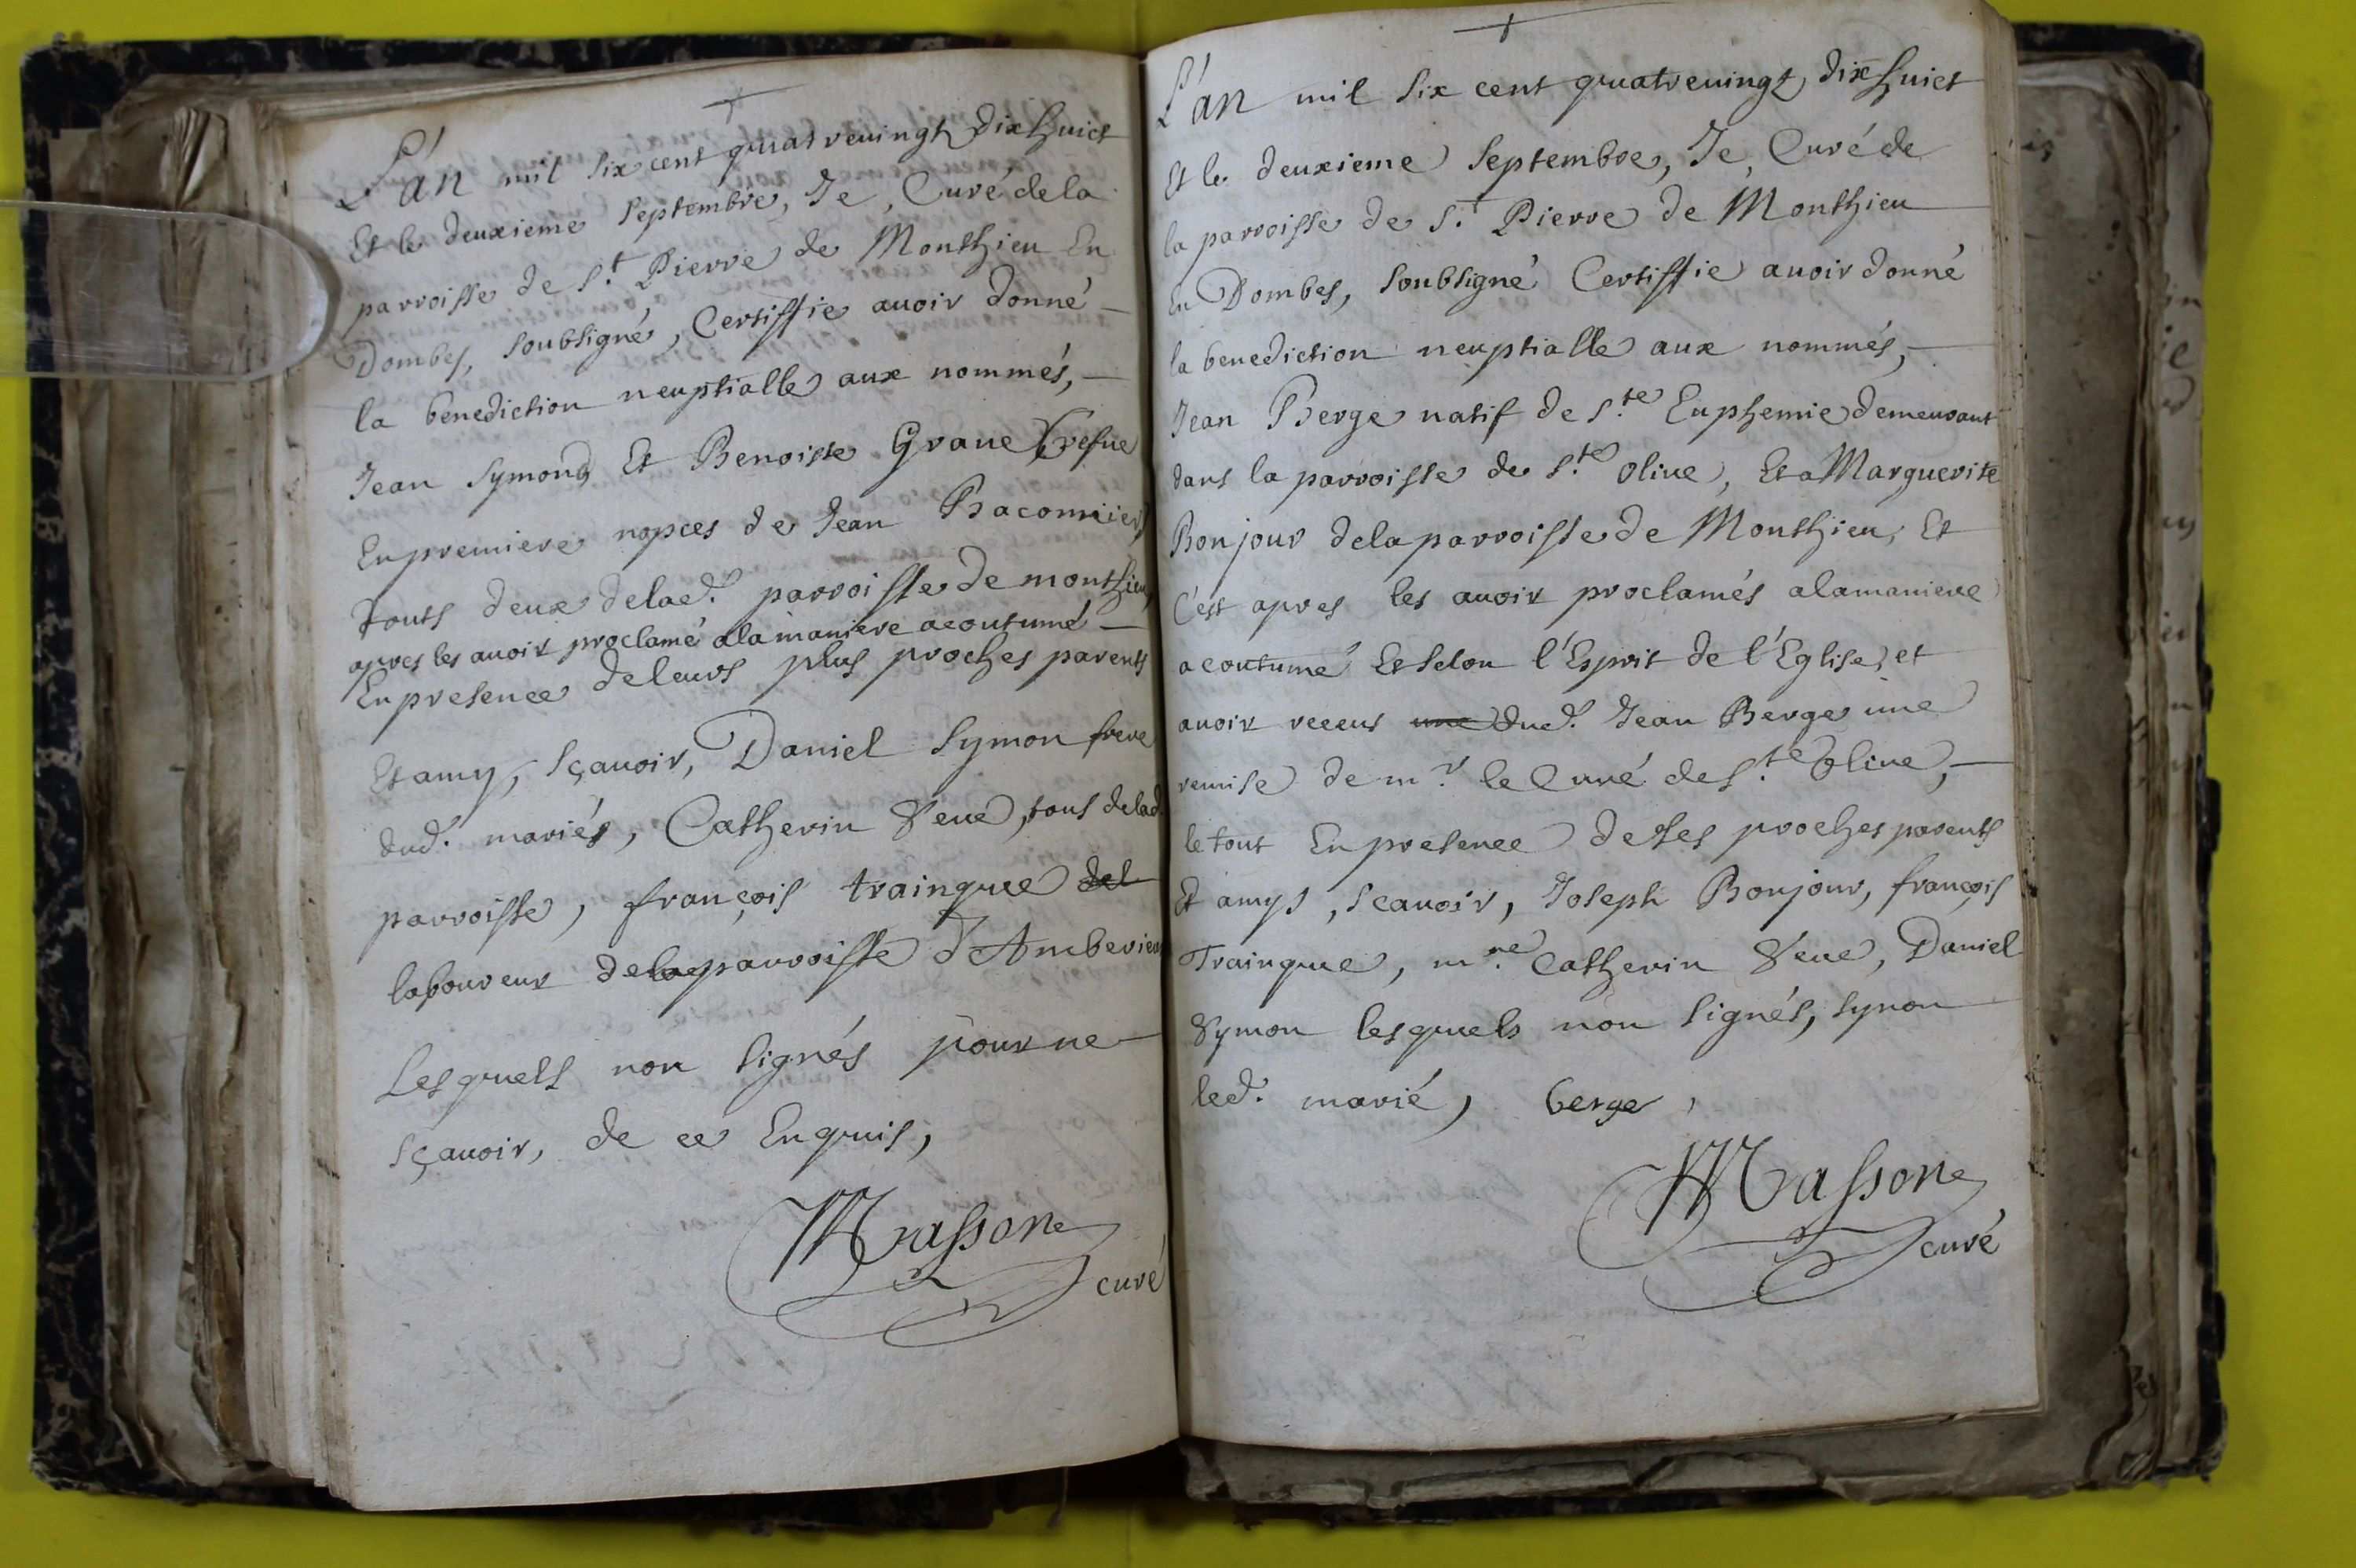 L'an mil six cent quatrevingt dixhuict
Et le deuxieme septembre, Je, Curé de la
parroisse de St Pierre de Monthieu En
Dombes, soubsigné, Certiffie auoir donné
la benediction neuptialle aux nommés,
Jean Symond Et Benoiste Graue vefue
En premiere nopces de Jean Baconnier,
touts deux de lad. parroisse de monthieu,
apres les auoir proclamé a la maniere acoutumé
En presence de leurs plus proches parents
Et amy, sçauoir, Daniel Symon frere
dud. mariés, Catherin Seue, tous de lad.
parroisse, françois trainque del
laboureur de la parroisse d'Amberieu
Lesquels non signés pour ne
sçauoir, de ce Enquis,
Massone
curé
L'an mil six cent quatrevingt dixhuict
Et le deuxieme septembre, Je, Curé de
la parroisse de St. Pierre de Monthieu
En Dombes, soubsigné Certiffie auoir donné
la benediction neuptialle aux nommés,
Jean Berge natif de Ste Euphemie demeurant
dans la parroisse de Ste olive, Et a Marguerite
Bonjour de la parroisse de Monthieu, Et
C'est apres les auoir proclamés a la maniere
acoutumé Et selon l'Esprit de l'Eglise, et
auoir receus une dud. Jean Berge une
remise de mr le Curé de Ste Olive,
le tout En presence de ses proches parents
Et amys, scauoir, Joseph Bonjour, françois
Trainque, mre Catherin Seue, Daniel
Symon lesquels non signés, synon
led. marié, berge,
Massone
curé